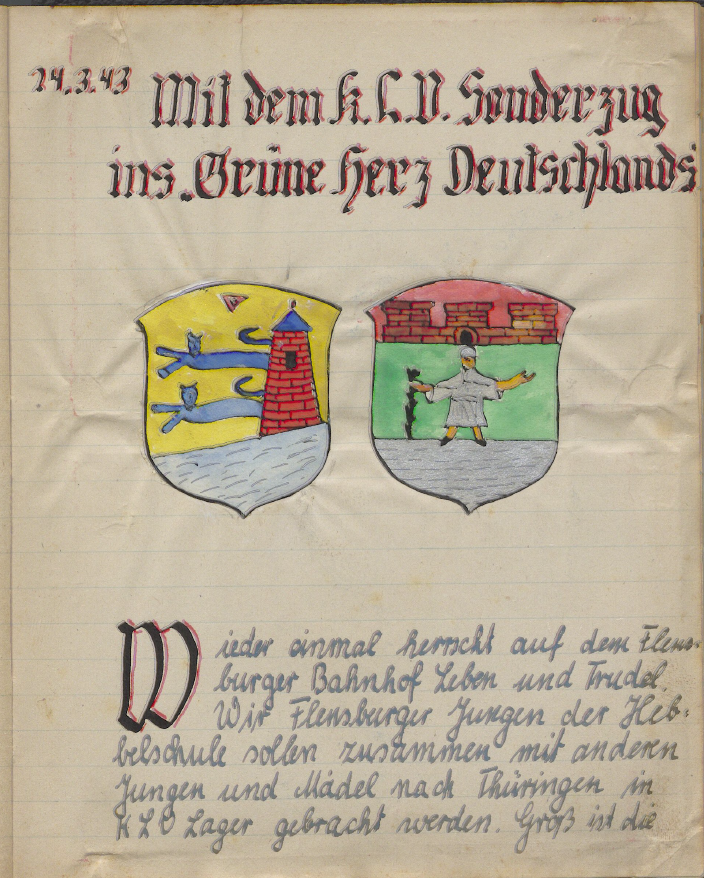 24.3.43 Mit dem K.L.V. Sonderzug
ins Grüne Herz Deutschlands
Wieder einmal herrscht auf dem Flens-
burger Bahnhof Leben und Trudel.
Wir Flensburger Jungen der Heb-
belschule sollen zusammen mit anderen
Jungen und Mädel nach Thüringen in
KLV Lager gebracht werden. Groß ist die